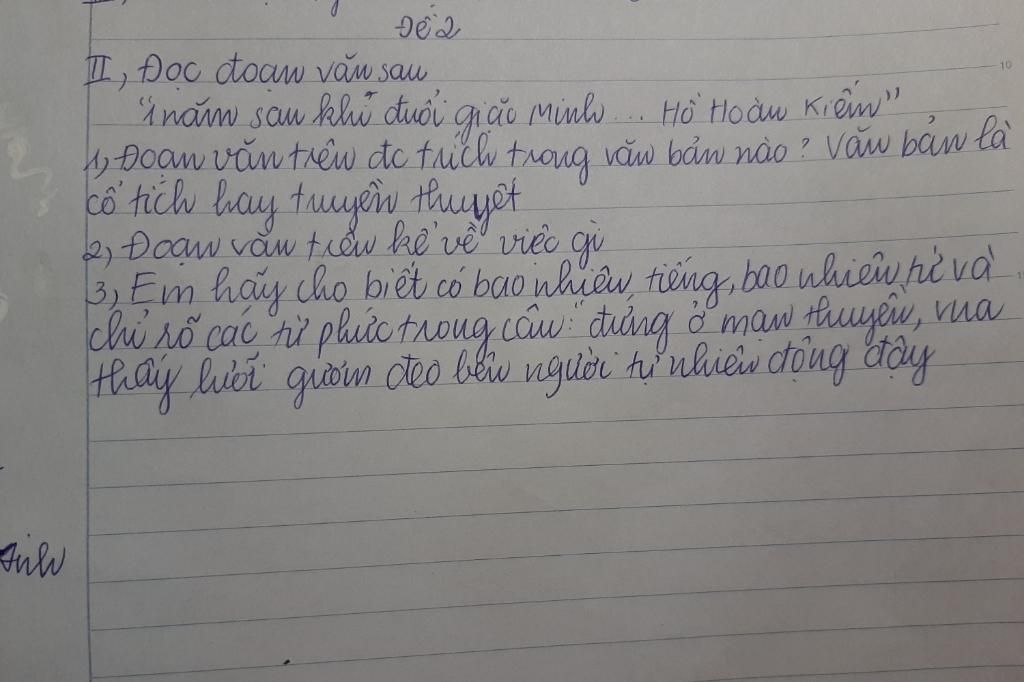 Đề 2
II, Đọc đoạn văn sau
"1 năm sau khi đuổi giặc Minh... Hồ Hoàn Kiếm"
1, Đoạn văn trên đc trích trong văn bản nào? Văn bản là
cổ tích hay truyền thuyết
2, Đoạn văn trên kể về việc gì
3, Em hãy cho biết có bao nhiêu tiếng, bao nhiêu từ và
chỉ rõ các từ phức trong câu: "đứng ở mạn thuyền, vua
thấy lưỡi gươm đeo bên người tự nhiên động đậy